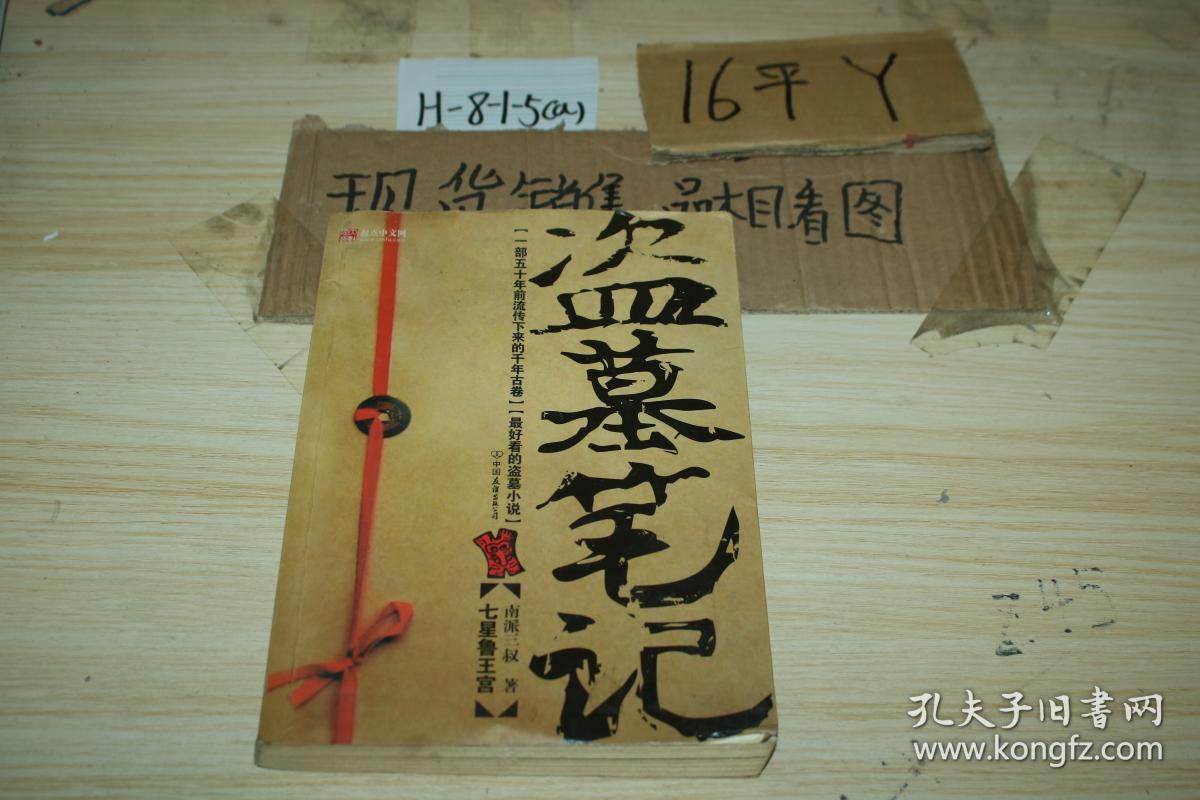 H-8-1-5(a)
16平 Y
现货销售 品相看图
起点中文网
盗墓笔记
【一部五十年前流传下来的千年古卷】【最好看的盗墓小说】
中国友谊出版公司
南派三叔 著
七星鲁王宫
孔夫子旧書网
www.kongfz.com